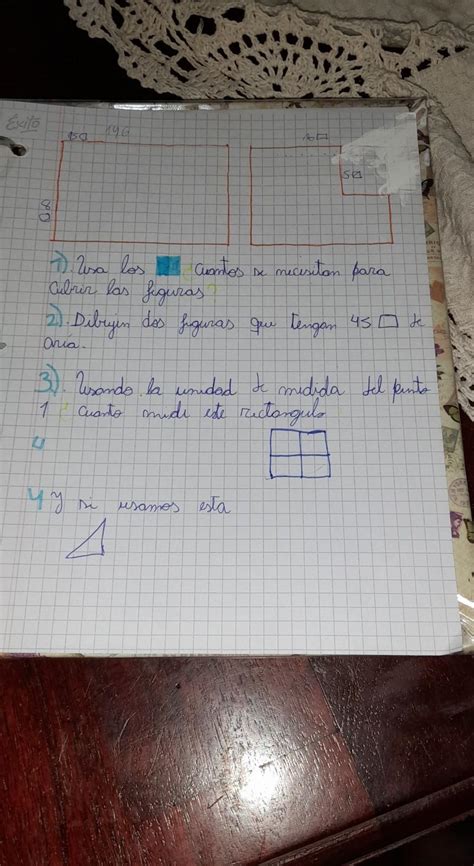 Exito
15□ 196
5□
8□
1). Usa los ¿Cuantos se necesitan para
cubrir las figuras?
2). Dibujen dos figuras que tengan 45□ de
aria.
3). Usando la unidad de medida del punto
1 ¿cuanto mide este rectangulo
4
4 Y si usamos esta